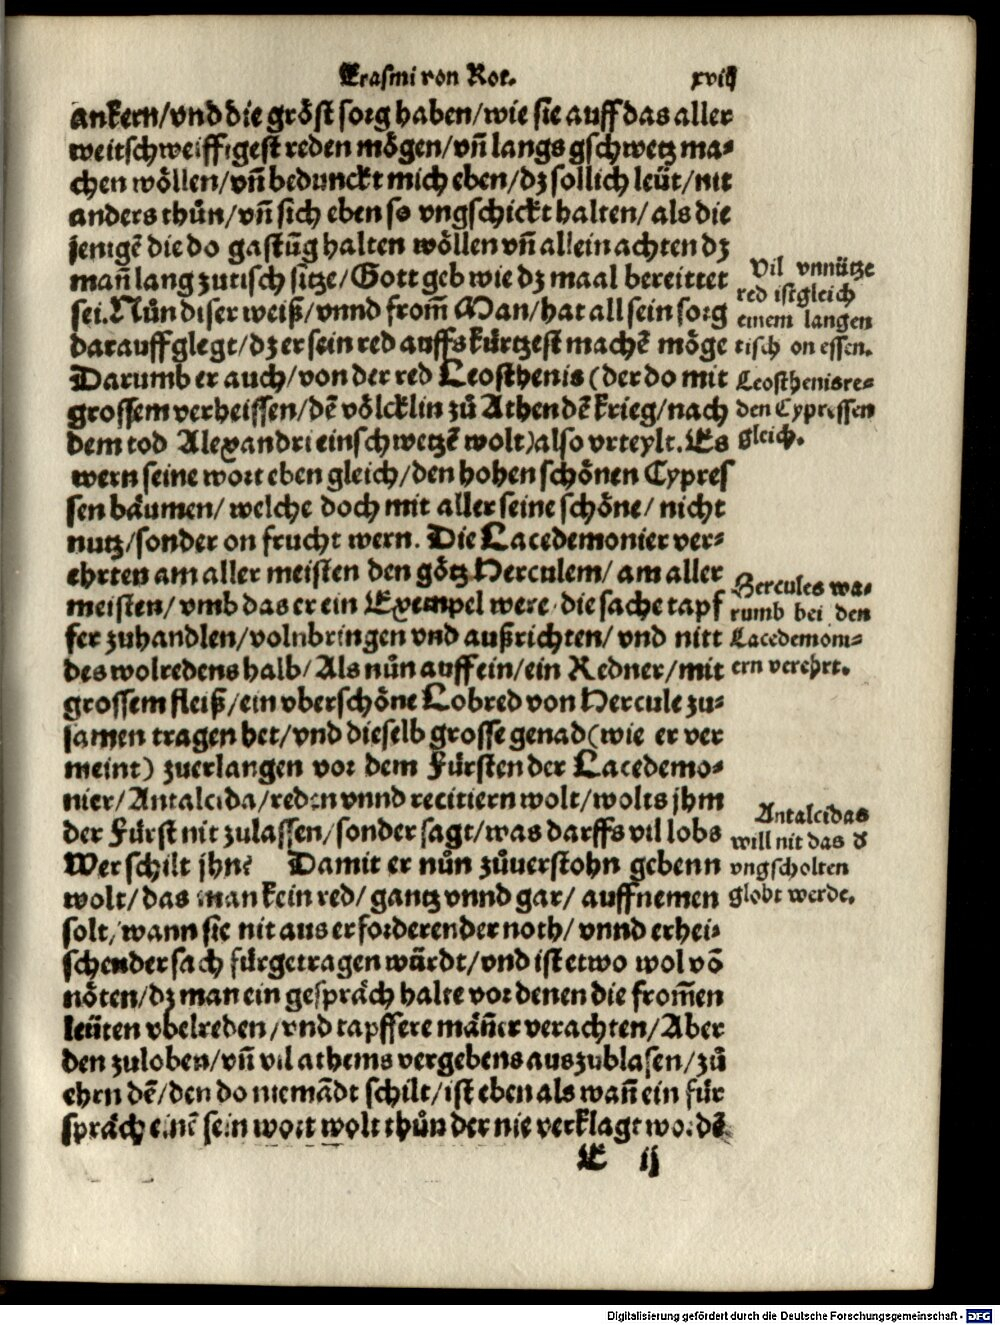 Erasmi von Rot. xviij
ankern/vnd die gröst sorg haben/wie sie auff das aller
weitschweiffigest reden mögen/vñ langs gschwetz ma⸗
chen wöllen/vñ bedunckt mich eben/dz sollich leüt/nit
anders thůn/vñ sich eben so vngschickt halten/als die
jenigẽ die do gastũg halten wöllen vñ allein achten dz
mañ lang zu tisch sitze/Gott geb wie dz maal bereittet
sei. Nůn diser weiß/vnnd from̃ Man/hat all sein sorg
darauff glegt/dz er sein red auffs kürtzest machẽ möge
Darumb er auch/von der red Leosthenis (der do mit
grossem verheissen/dẽ völcklin zů Athen dẽ krieg/nach
dem tod Alexandri einschwetzẽ wolt) also vrteylt. Es
wern seine wort eben gleich/den hohen schönen Cypres
sen bäumen/welche doch mit aller seine schöne/nicht
nutz/sonder on frucht wern. Die Lacedemonier ver⸗
ehrten am aller meisten den götz Herculem/am aller
meisten/vmb das er ein Exempel were die sache tapf
fer zuhandlen/volnbringen vnd außrichten/vnd nitt
des wolredens halb/Als nůn auff ein/ein Redner/mit
grossem fleiß/ein vberschöne Lobred von Hercule zu⸗
samen tragen het/vnd dieselb grosse genad (wie er ver
meint) zuerlangen vor dem Fürsten der Lacedemo⸗
nier/Antalcida/reden vnnd recitiern wolt/wolts jhm
der Fürst nit zulassen/sonder sagt/was darffs vil lobs
Wer schilt jhn? Damit er nůn zůuerstohn gebenn
wolt/das man kein red/gantz vnnd gar/auffnemen
solt/wann sie nit aus erforderender noth/vnnd erhei⸗
schender sach fürgetragen würdt/vnd ist etwo wol võ
nöten/dz man ein gespräch halte vor denen die from̃en
leüten vbelreden/vnd tapffere mäñer verachten/Aber
den zuloben/vñ vil athems vergebens auszublasen/zů
ehrn dẽ/den do niemãdt schilt/ist eben als wañ ein für
spräch einẽ sein wort wolt thůn der nie verklagt wordẽ
E ij
Vil vnnütze
red ist gleich
einem langen
tisch on essen.
Leosthenis re⸗
den Cypressen
gleich.
Hercules wa⸗
rumb bei den
Lacedemoni⸗
ern verehrt.
Antalcidas
will nit das d̕
vngscholten
globt werde.
Digitalisierung gefördert durch die Deutsche Forschungsgemeinschaft - DFG